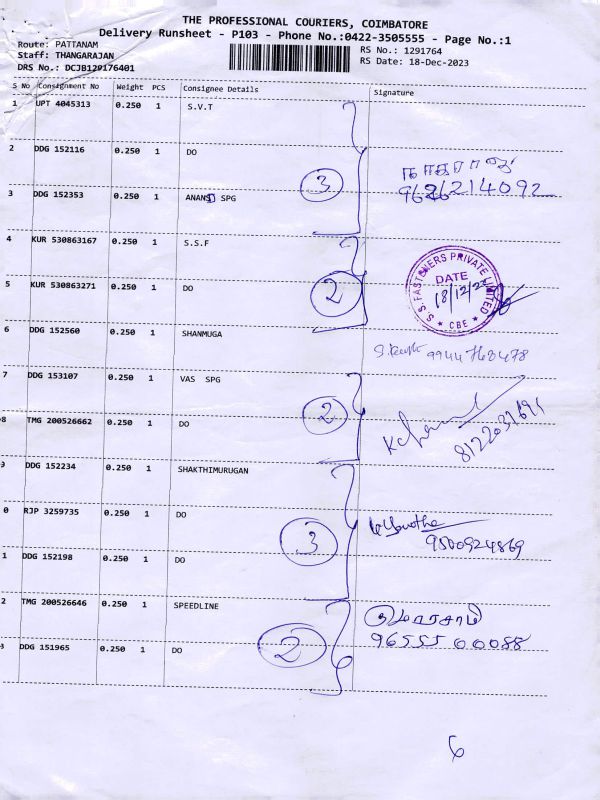 THE PROFESSIONAL COURIERS, COIMBATORE
Delivery Runsheet - P103 - Phone No.:0422-3505555 - Page No.:1
Route: PATTANAM
RS No.: 1291764
Staff: THANGARAJAN
RS Date: 18-Dec-2023
DRS No.: DCJB129176401
S No Consignment No Weight PCS Consignee Details Signature
1 UPT 4045313 0.250 1 S.V.T
2 DDG 152116 0.250 1 DO
நாகராஜ்
3
9626214092
3 DDG 152353 0.250 1 ANAND SPG
4 KUR 530863167 0.250 1 S.S.F
S.S. FASTENERS PRIVATE LIMITED
DATE
18/12/23
* CBE *
5 KUR 530863271 0.250 1 DO
2
6 DDG 152560 0.250 1 SHANMUGA
9944768478
7 DDG 153107 0.250 1 VAS SPG
2
8 TMG 200526662 0.250 1 DO
8122031691
9 DDG 152234 0.250 1 SHAKTHIMURUGAN
0 RJP 3259735 0.250 1 DO
3
9500924869
1 DDG 152198 0.250 1 DO
2 TMG 200526646 0.250 1 SPEEDLINE
குமாரசாமி
2
9655500088
3 DDG 151965 0.250 1 DO
6